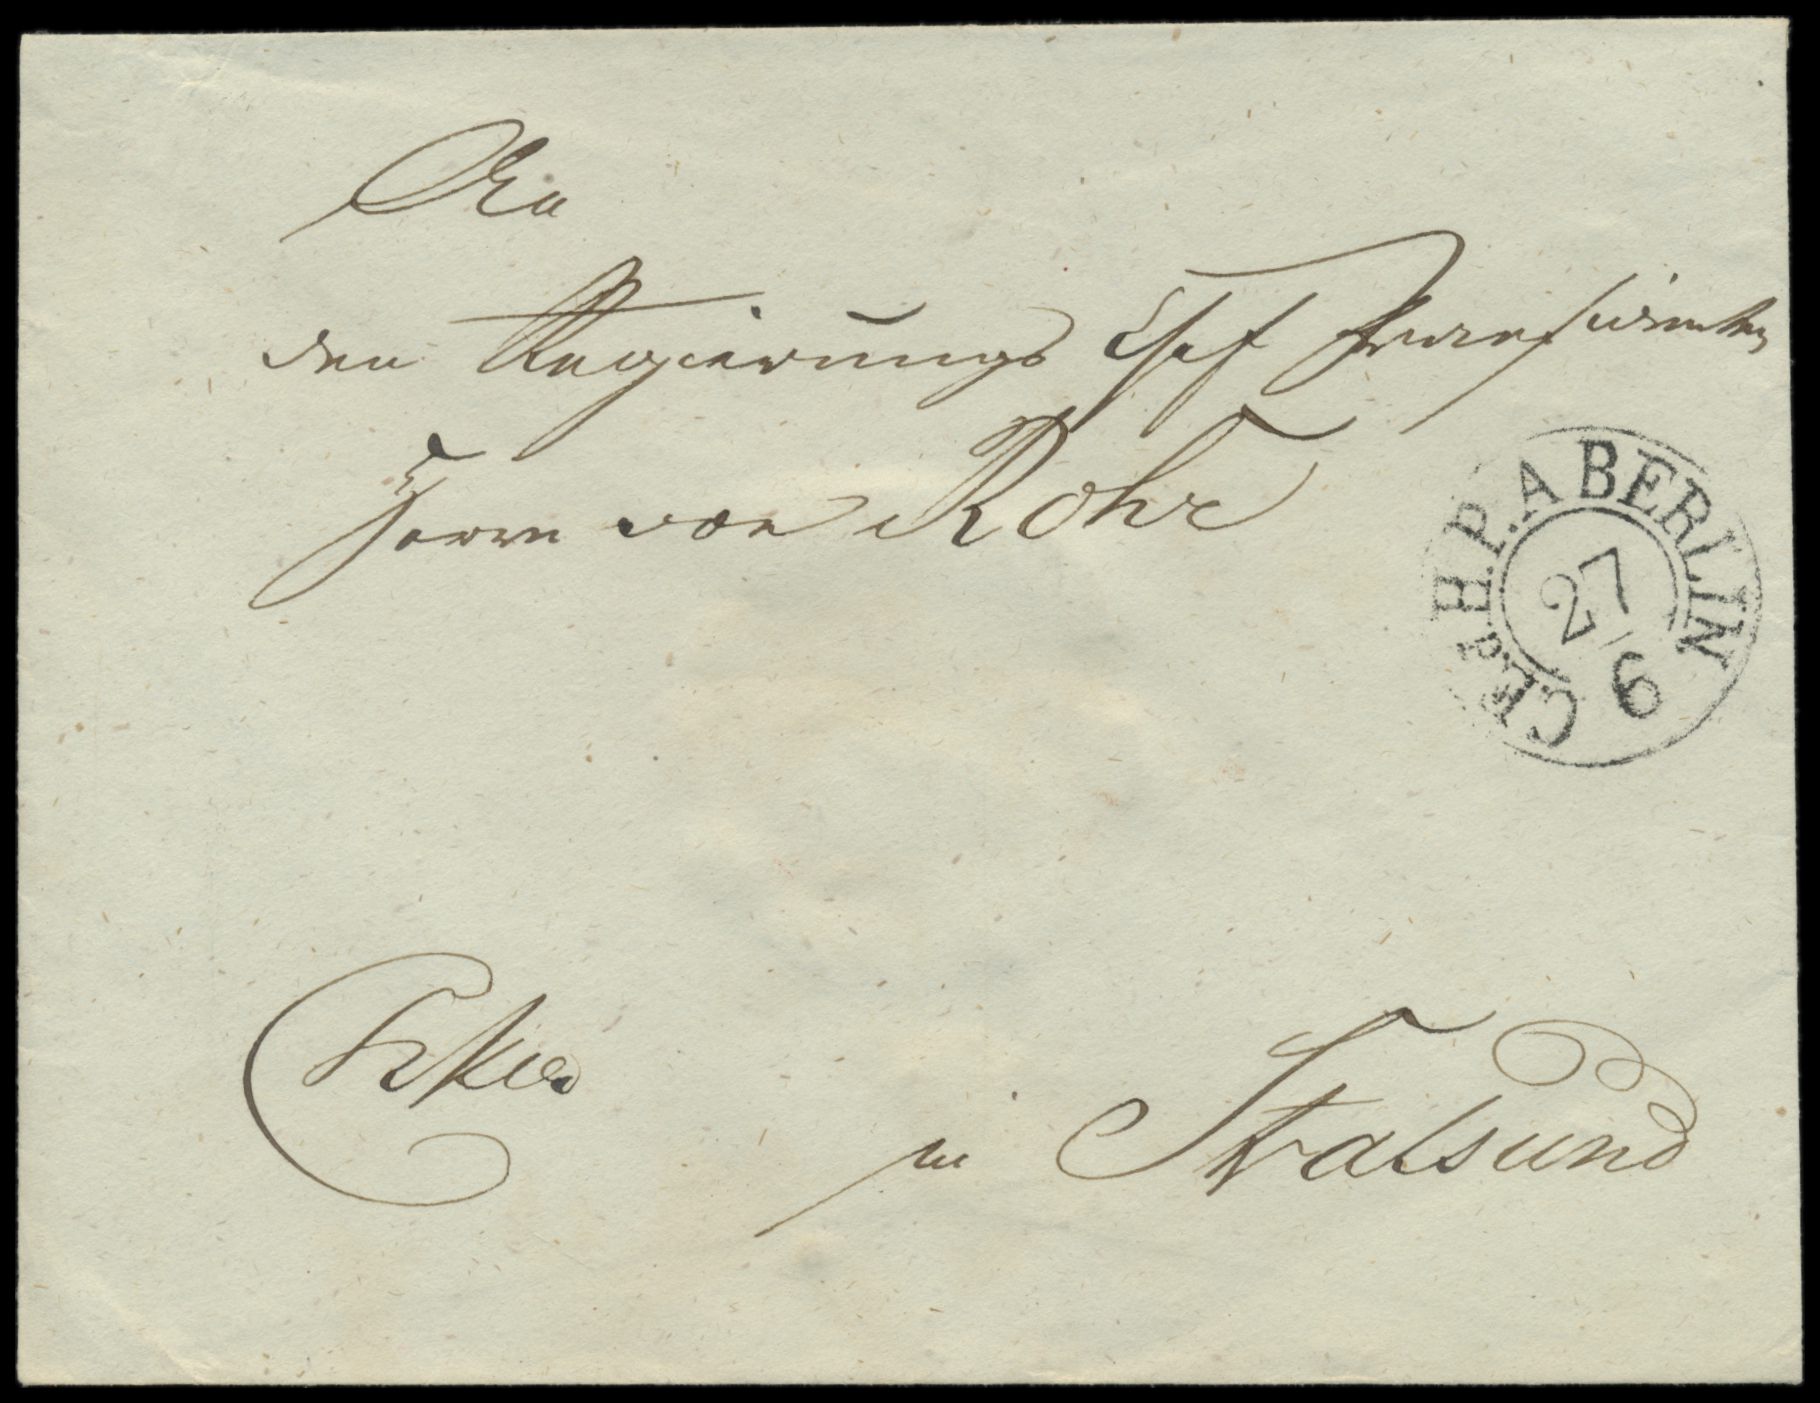 An
den Regierungs Chef Praesidenten
Herrn von Rohr
C.E. p. H.P.A BERLIN
27/6
in Stralsund